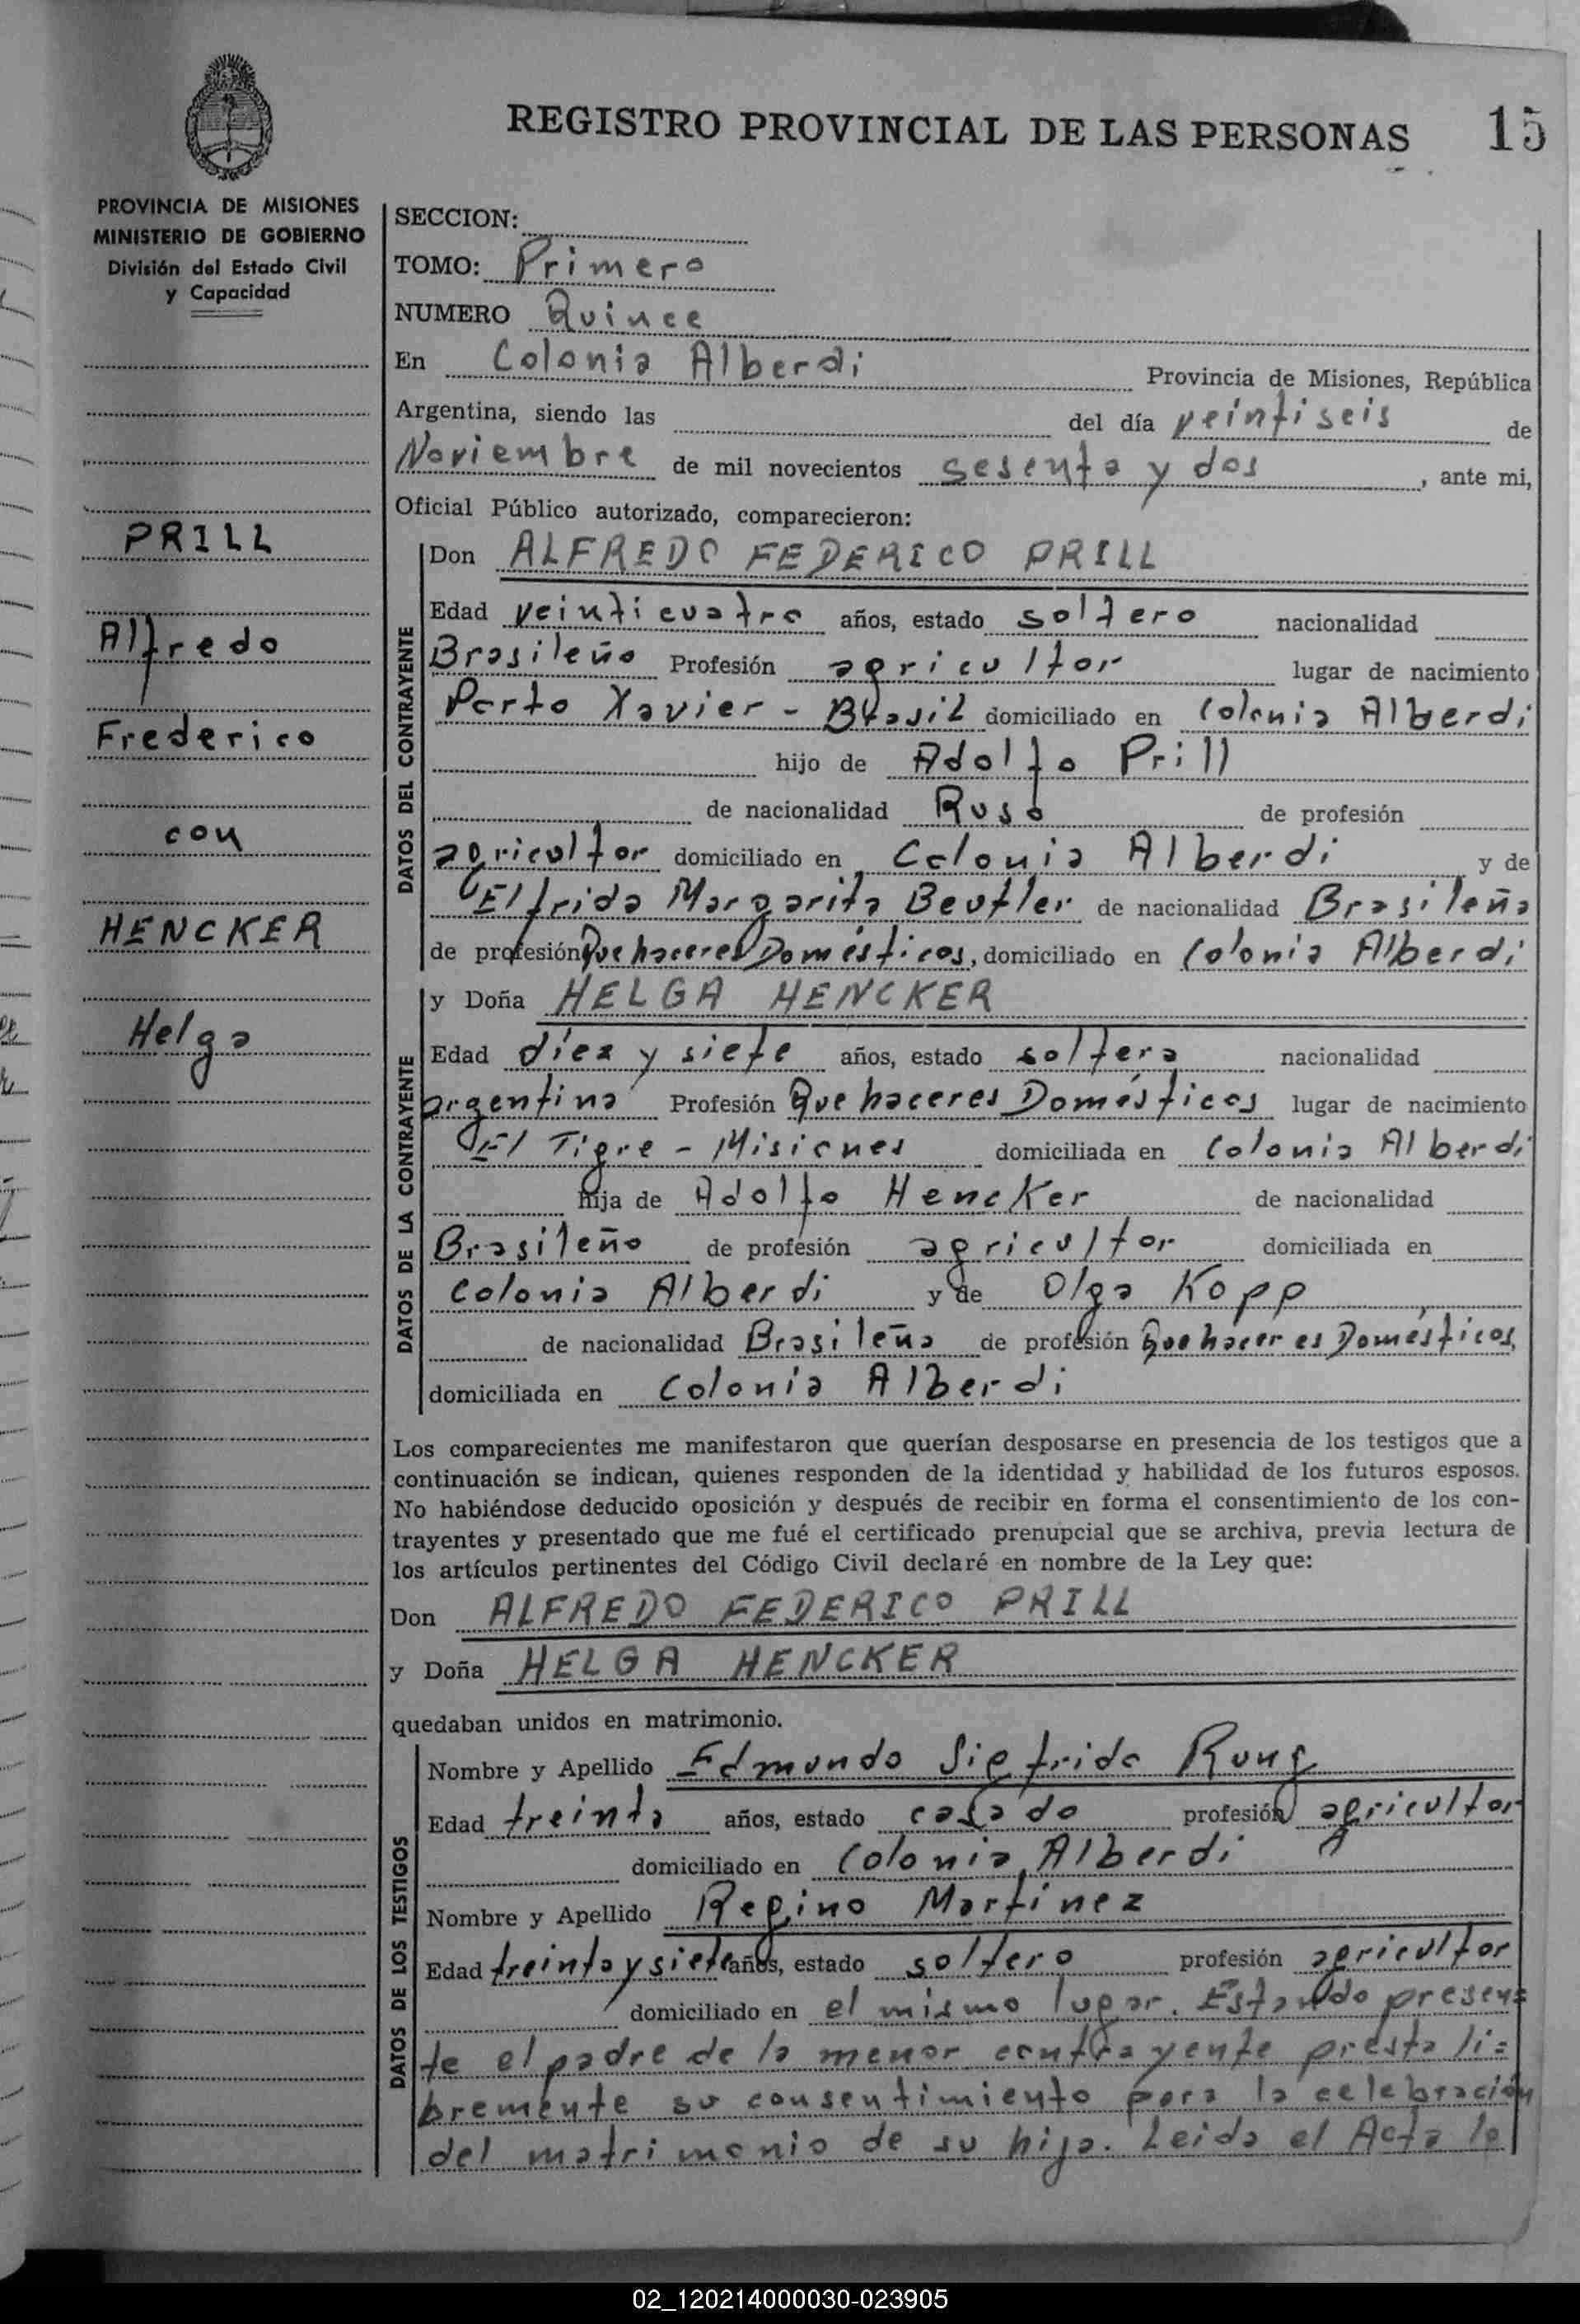 REGISTRO PROVINCIAL DE LAS PERSONAS 15
PROVINCIA DE MISIONES
MINISTERIO DE GOBIERNO
División del Estado Civil
y Capacidad
PRILL
Alfredo
Frederico
con
HENCKER
Helga
SECCION:
TOMO: Primero
NUMERO Quince
En Colonia Alberdi Provincia de Misiones, República
Argentina, siendo las del día veintiseis de
Noviembre de mil novecientos sesenta y dos, ante mi,
Oficial Público autorizado, comparecieron:
DATOS DEL CONTRAYENTE
Don ALFREDO FEDERICO PRILL
Edad veinticuatro años, estado soltero nacionalidad
Brasileño Profesión agricultor lugar de nacimiento
Porto Xavier - Brasil domiciliado en Colonia Alberdi
hijo de Adolfo Prill
de nacionalidad Ruso de profesión
agricultor domiciliado en Colonia Alberdi y de
Elfrida Margarita Beutler de nacionalidad Brasileña
de profesión Que haceres Domésticos, domiciliado en Colonia Alberdi
DATOS DE LA CONTRAYENTE
y Doña HELGA HENCKER
Edad diez y siete años, estado soltera nacionalidad
argentina Profesión Que haceres Domésticos lugar de nacimiento
El Tigre - Misiones domiciliada en Colonia Alberdi
hija de Adolfo Hencker de nacionalidad
Brasileño de profesión agricultor domiciliada en
Colonia Alberdi y de Olga Kopp
de nacionalidad Brasileña de profesión Que haceres Domésticos,
domiciliada en Colonia Alberdi
Los comparecientes me manifestaron que querían desposarse en presencia de los testigos que a
continuación se indican, quienes responden de la identidad y habilidad de los futuros esposos.
No habiéndose deducido oposición y después de recibir en forma el consentimiento de los con-
trayentes y presentado que me fué el certificado prenupcial que se archiva, previa lectura de
los artículos pertinentes del Código Civil declaré en nombre de la Ley que:
Don ALFREDO FEDERICO PRILL
y Doña HELGA HENCKER
quedaban unidos en matrimonio.
DATOS DE LOS TESTIGOS
Nombre y Apellido Edmundo Sigfrido Rung
Edad treinta años, estado casado profesión agricultor
domiciliado en Colonia Alberdi
Nombre y Apellido Regino Martinez
Edad treinta y siete años, estado soltero profesión agricultor
domiciliado en el mismo lugar. Estando presen=
te el padre de la menor contrayente presta li=
bremente su consentimiento para la celebración
del matrimonio de su hija. Leida el Acta la
02_120214000030-023905